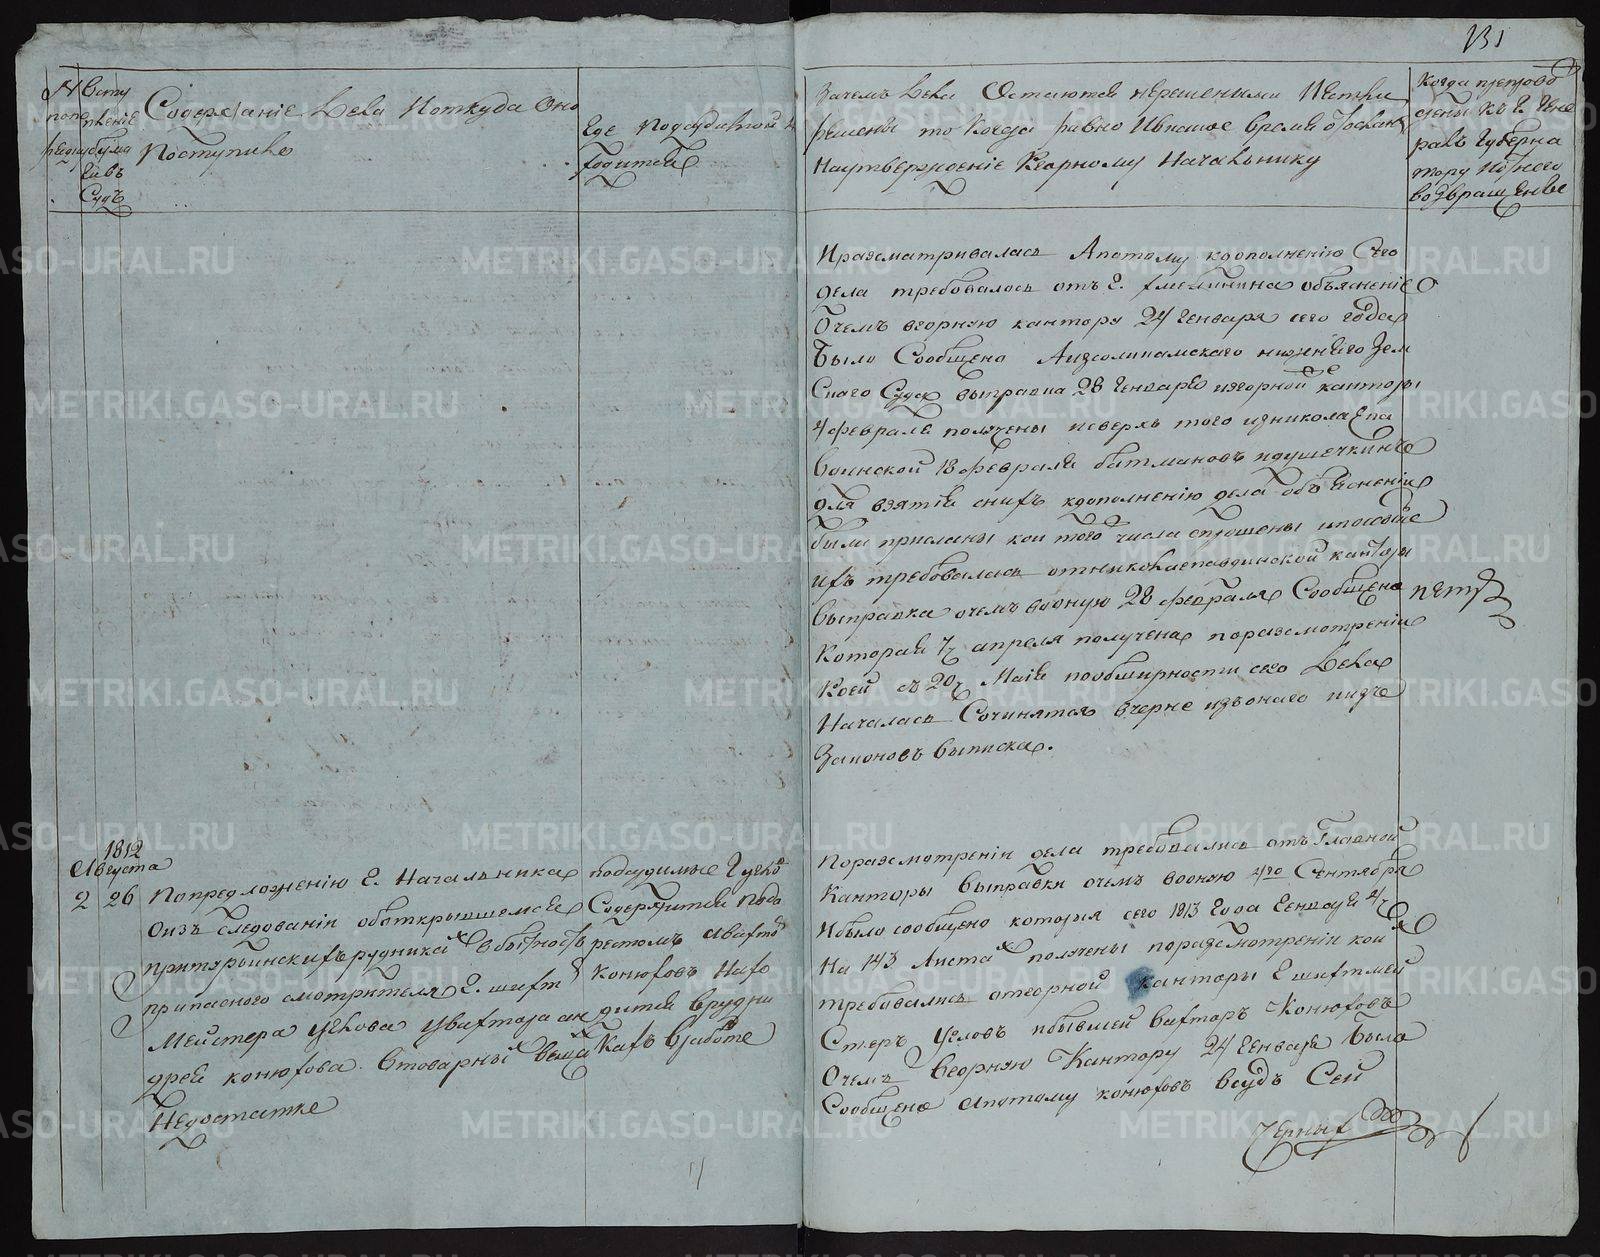 131
№ попо рядку
Всту пление бума ги въ Судъ
Содержаніе дела и откуда оно
Поступило
Где подсудимой на
ходится
Зачемъ дела Остаются нерешеными И естли
решены то когда равно И в какое время отосланы
На утвержденіе Горному Начальнику
Когда препрово
ждены къ Г. Гене
ралъ Губерна
тору И отнего
возвращение
И разсматривалась А потому к дополнению Сего
дела требовалось отъ Г. объясненіе
О чемъ в горную кантору 24 Генваря сего года
Было Сообщено нижняго Зем
Скаго Суда выправка 28 Генваря из горной канторы
4 февраля получены и сверхъ того из николаепа
динской 18 февраля
для взятия с нихъ к дополнению дела объясненія
были присланы кои того числа спрошены и после
ихъ требовалась от николаепавдинской канторы
выправка о чемъ в оную 28 февраля Сообщено
Которая 7 апреля получена по разсмотреніи
Коей съ 20 Маія по обширности сего дела
Началась Сочинятся в черне изъ онаго и изъ
Законовъ выписка.
1812
Августа
2 26
По предложению Г. Начальника
О изъ следованіи об открывшемся
при турьинскихъ рудникахъ в бытность
припаснаго смотрителя Г. шихт
Мейстера Углова У вахтора ан
дрея конюхова в товарныхъ вещахъ
Недостатке
подсудимые Углов
Содержится подъ а
рестомъ а вахторъ
конюховъ Нахо
дится в рудни
кахъ в работе
По разсмотреніи дела требовались отъ Главной
Канторы выправки о чемъ в оную 4го Сентября
И было сообщено которыя сего 1813 Года Генваря 4
На 143 Листахъ получены по разсмотреніи кои
требовались от горной канторы Г. шихтмей
Стеръ Угловъ и бывшей вахторъ Конюховъ
О чемъ в Горную Кантору 24 Генваря было
Сообщено а потому конюховъ в судъ Сей
Черныхъ
METRIKI.GASO-URAL.RU